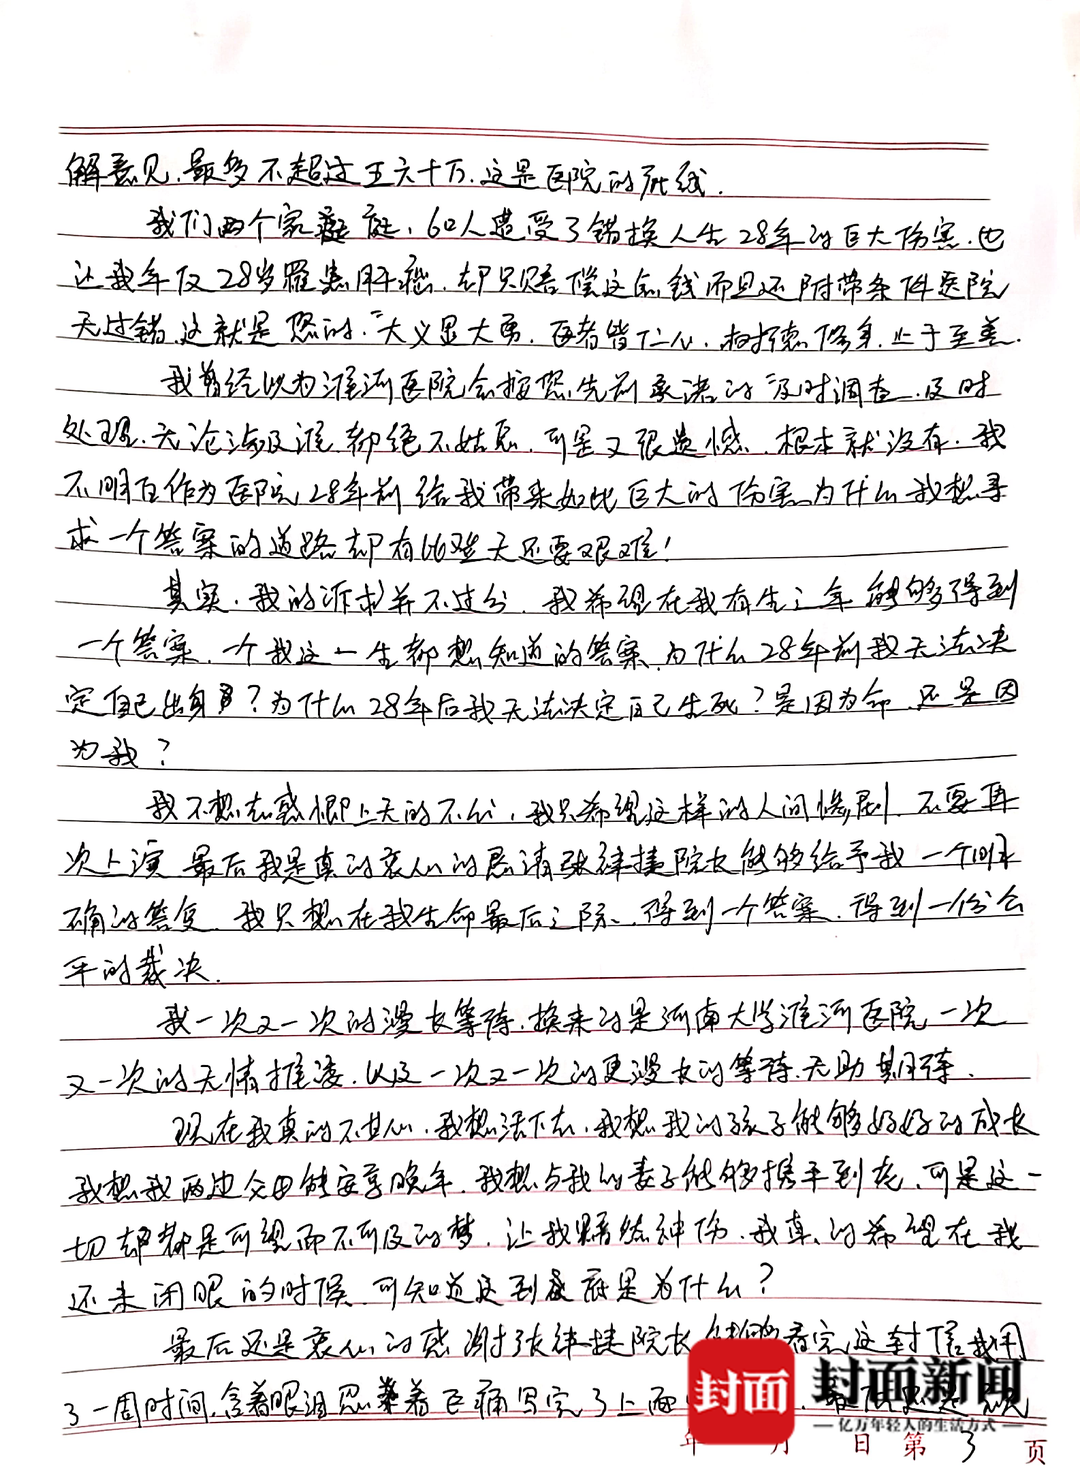 解意见,最多不超过五六十万,这是医院的底线.
我们两个家庭,60人遭受了错换人生28年的巨大伤害,也
让我年仅28岁罹患肝癌,却只赔偿这点钱而且还附带条件医院
无过错,这就是您的,“大义显大勇,医者皆仁心,相携德修身,止于至善.
我曾经以为淮河医院会按您先前承诺的“及时调查,及时
处理,无论涉及谁都绝不姑息,可是又很遗憾,根本就没有,我
不明白作为医院28年前给我带来如此巨大的伤害为什么我想寻
求一个答案的道路却有比登天还要艰难!
其实,我的诉求并不过分,我希望在我有生之年能够得到
一个答案,一个我这一生都想知道的答案,为什么28年前我无法决
定自己出身?为什么28年后我无法决定自己生死?是因为命,还是因
为我?
我不想去感慨上天的不公,我只希望这样的人间惨剧,不要再
次上演,最后我是真的衷心的恳请张祎捷院长能够给予我一个明
确的答复,我只想在我生命最后之际,得到一个答案,得到一份公
平的裁决.
我一次又一次的漫长等待,换来的是河南大学淮河医院一次
又一次的无情推诿,以及一次又一次的更漫长的等待,无助期待.
现在我真的不甘心,我想活下去,我想我的孩子能够好好的成长
我想我两边父母能安享晚年,我想与我的妻子能够携手到老,可是这一
切却都是可望而不可及的梦,让我黯然神伤,我真的希望在我
还未闭眼的时候,可知道这到底是为什么?
最后还是衷心的感谢张祎捷院长能够看完这封信我用
了一周时间,含着眼泪忍着巨痛写完了上面
年 月 日 第 3 页
封面
封面新闻
亿万年轻人的生活方式